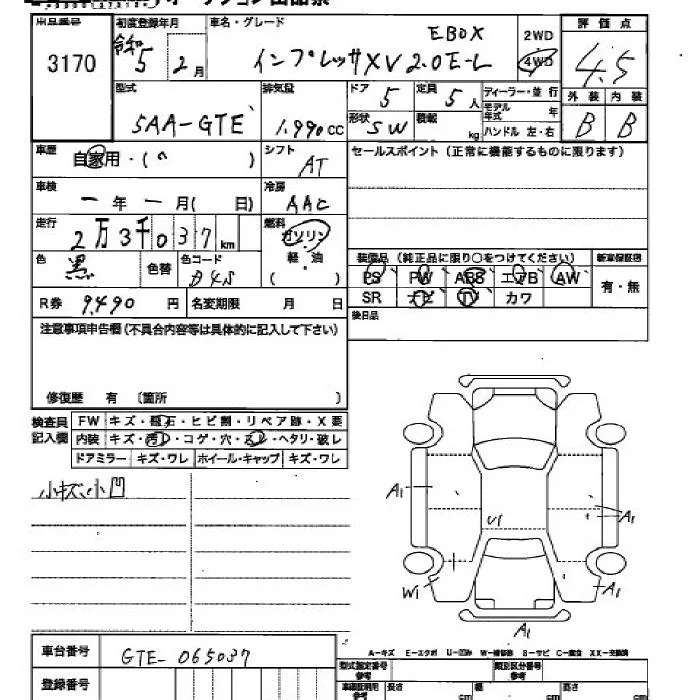 オークション出品票
出品番号 3170
初度登録年月 令和 5 2月
車名・グレード EBOX インプレッサXV 2.0E-L
2WD
4WD
評価点 4.5
型式 5AA-GTE
排気量 1.990cc
ドア 5
定員 5人
ディーラー・並行
モデル年式 年
形状 SW
積載 kg
ハンドル 左・右
外装 内装
B B
車歴 自家用・( 〃 )
シフト AT
セールスポイント(正常に機能するものに限ります)
車検 一年一月( 日)
冷房 AAC
走行 2万3千037km
燃料 ガソリン
軽・油
( )
色 黒
色替
色コード D4S
装備品(純正品に限り○をつけてください)
新車保証書
PS PW ABS エアB AW
有・無
SR ナビ TV カワ
R券 9.490円
名変期限 月 日
後日品
注意事項申告欄(不具合内容等は具体的に記入して下さい)
修復歴 有 〔箇所 〕
検査員記入欄
FW キズ・飛石・ヒビ割・リペア跡・X要
内装 キズ・汚れ・コゲ・穴・スレ・ヘタリ・破レ
ドアミラー キズ・ワレ ホイール・キャップ キズ・ワレ
小キズ、小凹
A1
U1
A1
W1
A1
A1
A-キズ E-エクボ U-凹み W-補修跡 S-サビ C-腐食 XX-交換済
車台番号 GTE-065037
登録番号
型式指定番号 参考
類別区分番号 参考
車庫証明用 参考
長さ cm
幅 cm
高さ cm